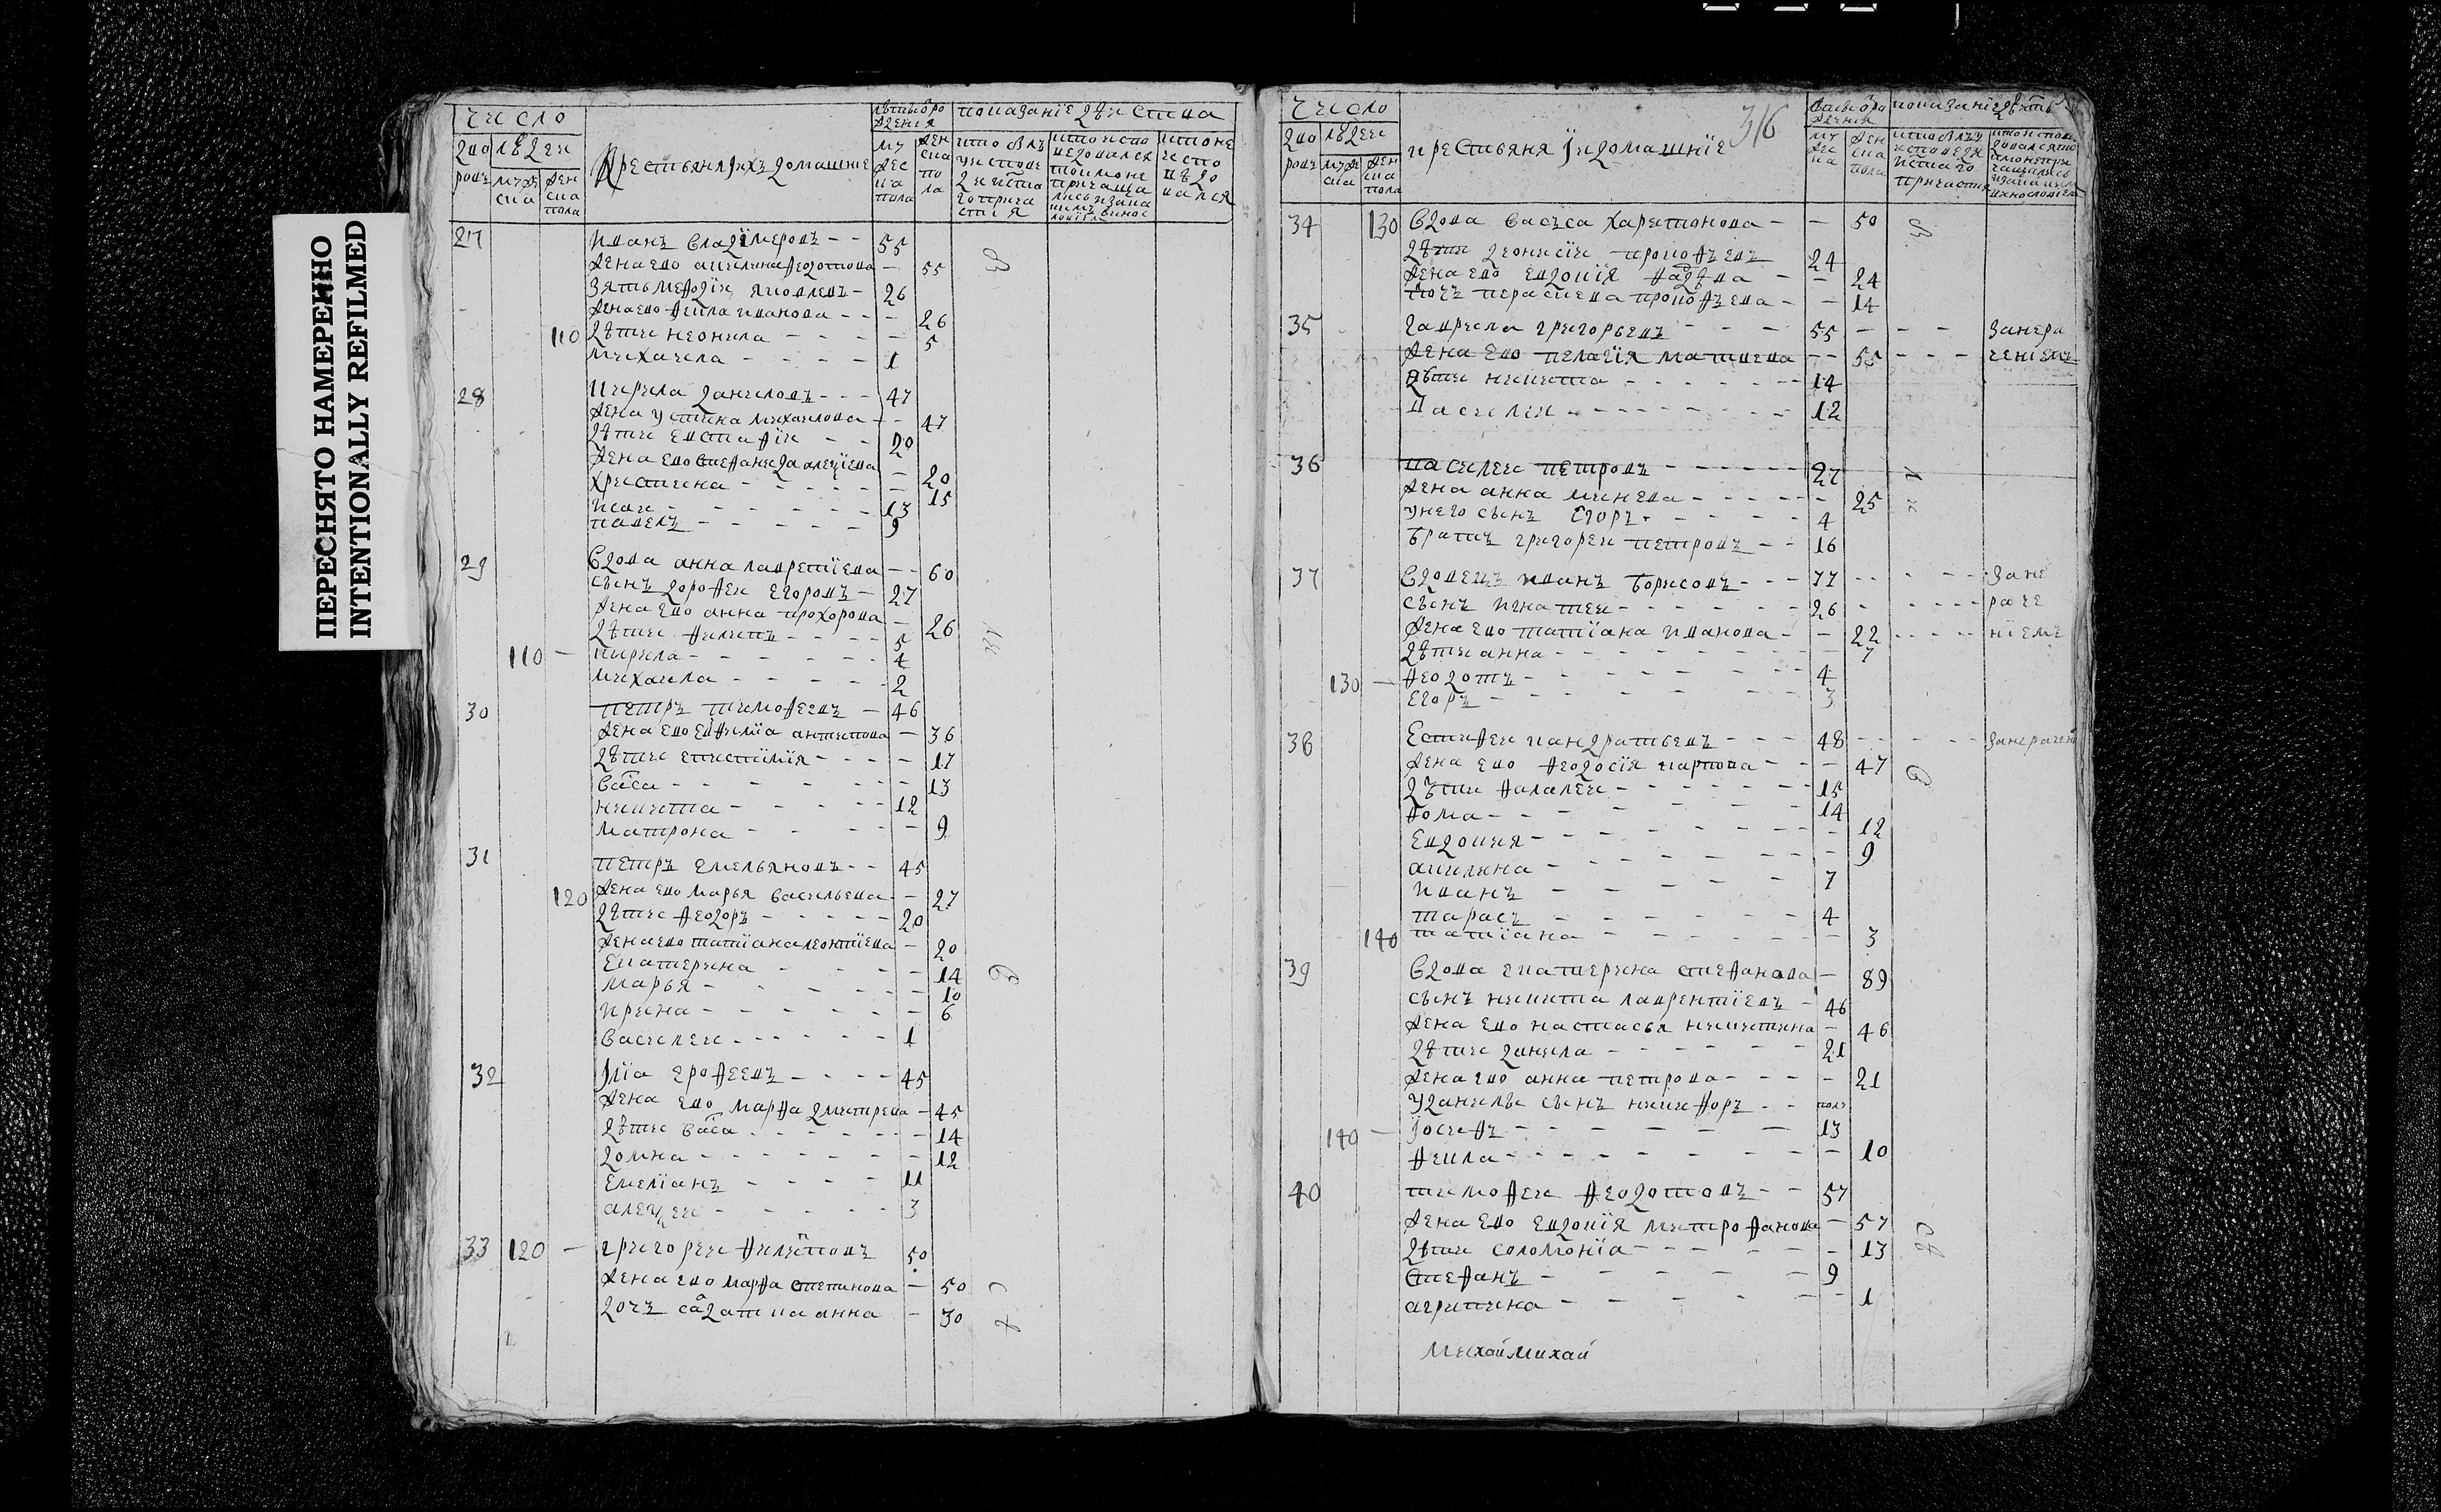 ПЕРЕСНЯТО НАМЕРЕННО
INTENTIONALLY REFILMED
число
дво людеи
ровъ муже ска жен ска пола
Крестьяня ихъ домашніе
лѣта от рождения
муж еска пола жен ска пола
показаніе дѣиства
27 Иванъ Владїмеровъ - - 55
жена ево акилина Федотова - 55
зять мефодїи яковлевъ - 26
жена ево Фекла иванова - - - 26
110 дѣти неонила - - - - 5
михаила - - - - 1
28 кирила даниловъ - - - 47
жена устина михаилова - - 47
дѣти евстафїи - - 20
жена ево степанида алексїева - 20
христина - - - - - 15
исаи - - - - - - 13
павелъ - - - - - 9
29 вдова анна лаврентїева - - 60
сынъ дорофеи егоровъ - 27
жена ево анна прохорова - 26
дѣти филипъ - - - - 5
110 - кирила - - - - - - 4
михаила - - - - - 2
30 петръ тимофеевъ - 46
жена ево евфимїа антипова - 36
дѣти епистимїя - - - - 17
васа - - - - - - - 13
никита - - - - - 12
матрона - - - - - 9
31 петръ емельяновъ - - 45
120 жена ево марья васильева - - 27
дѣти феодоръ - - - - - 20
жена ево татїана леонтїева - 20
екатерина - - - - 14
марья - - - - - - 10
ирина - - - - - - 6
василеи - - - - - - 1
32 Илїа ерофеевъ - - - - 45
жена ево марфа дмитрева - 45
дѣти васа - - - - - - - 14
домна - - - - - - 12
емелїанъ - - - - 11
алексеи - - - - - - 3
33 120 - григореи филиповъ 50
жена ево марфа степанова - 50
дочъ салдатка анна - 30
316
число
дво людеи
ровъ мужe ска жен ска пола
крестьяня ихъ домашнїе
34 130 вдова васса харитонова - - 50
дѣти деонисїи прокофьевъ 24
жена ево евдокїя - - 24
дочъ парасковья прокофьева - - 14
35 гаврила григорьевъ - - - 55 - - - занера
жена ево пелагїя матвеева - - 55 - - - ченїемъ
дѣти никита - - - - - - 14
василеи - - - - - - - - - 12
36 василеи петровъ - - - - - - 27
жена анна минева - - - - - - 25
унего сынъ егоръ - - - - - 4
братъ григореи петровъ - - 16
37 вдовецъ иванъ борисовъ - - - 77 - - - - - зане
сынъ игнатеи - - - - - - 26 - - - - - раче
жена ево татїана иванова - - 22 - - - - нїемъ
дѣти анна - - - - - - - - 7
130 - федотъ - - - - - - - 4
егоръ - - - - - - - 3
38 Естифеи кандратьевъ - - - 48 - - - - - занерачен
жена ево феодосїя карпова - - - 47
дѣти фалалеи - - - - - - - 15
фома - - - - - - - 14
евдокия - - - - - - - - 12
акилина - - - - - - - 9
иванъ - - - - - 7
тарасъ - - - - - 4
140 татїана - - - - - - 3
39 вдова екатерина стефанова - 89
сынъ никита лаврентїевъ - 46
жена ево настасья никитина - 46
дѣти данила - - - - - - 21
жена ево анна петрова - - - - 21
уданилы сынъ никифоръ - - пол
140 - Иосифъ - - - - - - 13
фекла - - - - - - - - 10
40 тимофеи феодотовъ - - 57
жена ево евдокїя митрофанова - 57
дѣти соломонїа - - - - - - 13
стефанъ - - - - - - 9
агрипина - - - - - - 1
михаи михаи